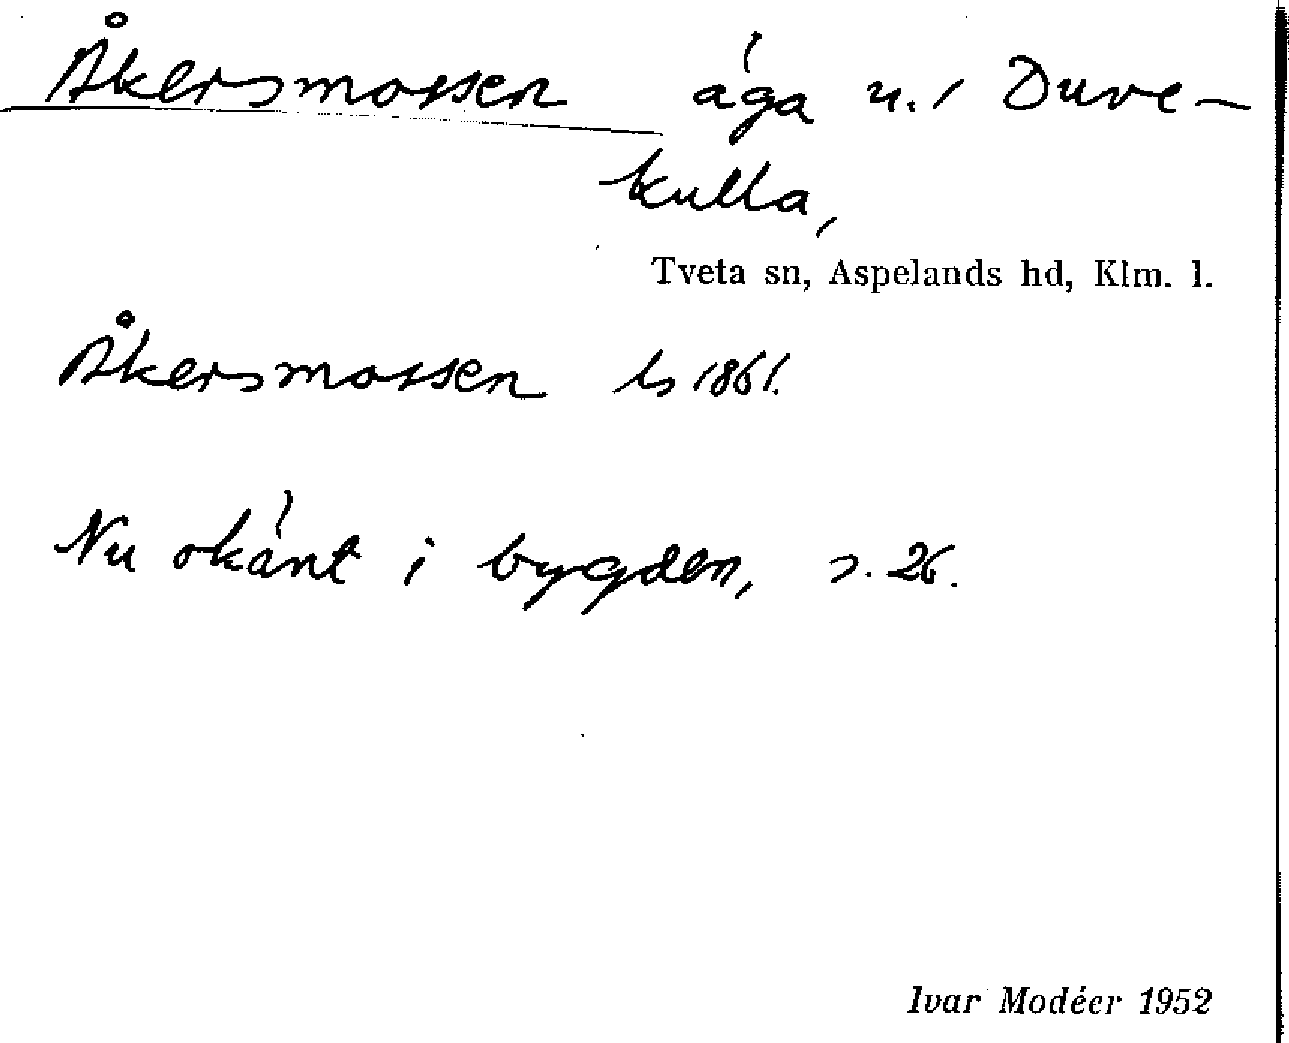 Åkersmossen äga u. / Duve-
kulla,
Tveta sn, Aspelands hd, Klm. l.
Åkersmossen ls 1861.
Nu okänt i bygden, s. 26.
Ivar Modéer 1952